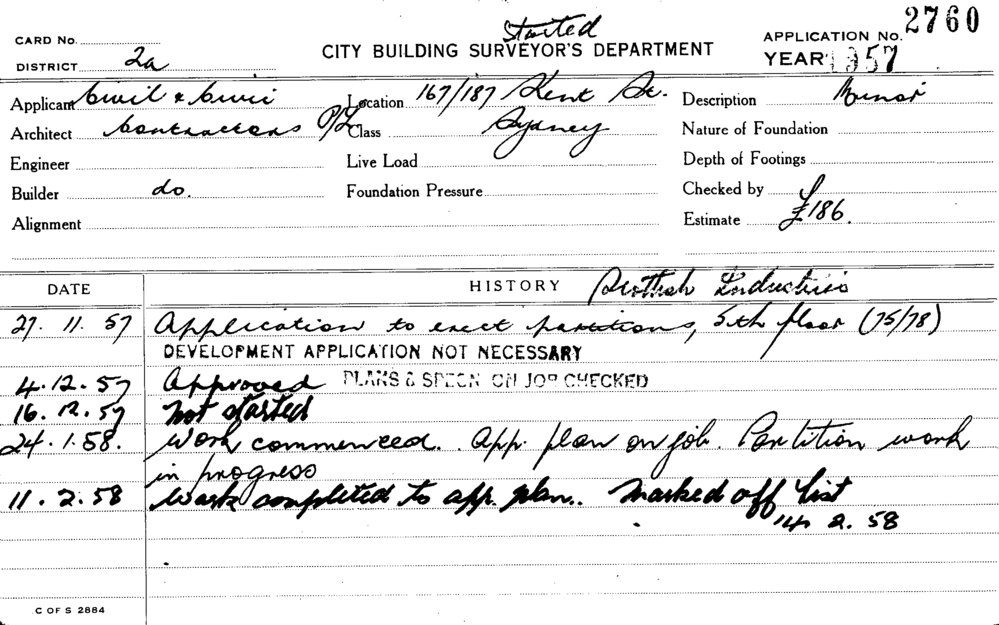 Started
CARD No.
CITY BUILDING SURVEYOR'S DEPARTMENT
APPLICATION No. 2760
DISTRICT 2a
YEAR 1957
Applicant Civil & Civic Location 167/187 Kent St. Description Minor
Architect Contractors P/L Class Sydney Nature of Foundation
Engineer Live Load Depth of Footings
Builder do. Foundation Pressure Checked by
Alignment Estimate £186.
DATE HISTORY Scottish Industries
27.11.57 Application to erect partitions, 5th floor (75/78)
DEVELOPMENT APPLICATION NOT NECESSARY
4.12.57 Approved PLANS & SPECN ON JOB CHECKED
16.12.57 Not started
24.1.58. Work commenced. App. plan on job. Partition work
in progress
11.2.58 Work completed to app. plan. Marked off list
14.2.58
C OF S 2884